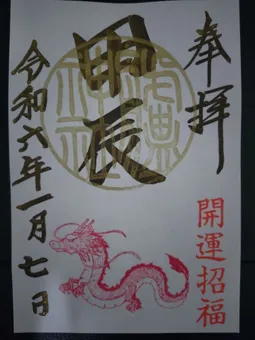 奉拝
甲辰
令和六年一月七日
開運招福